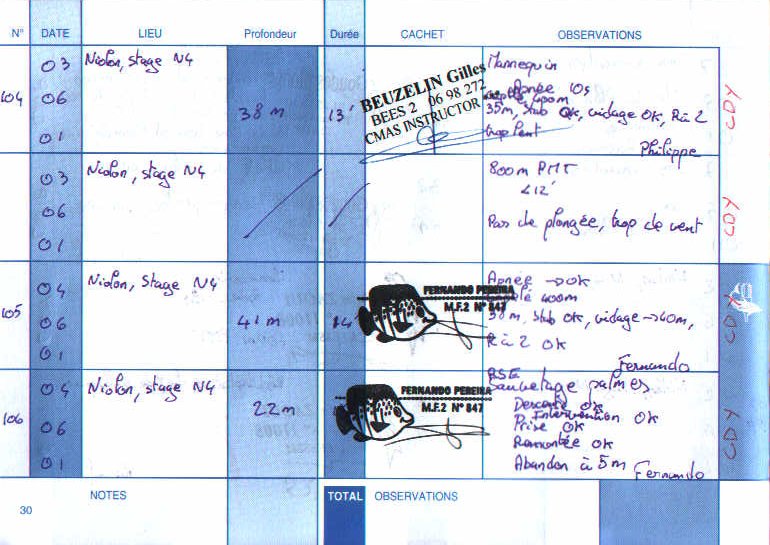 N° DATE LIEU Profondeur Durée CACHET OBSERVATIONS
104
03
06
01
Niolon, stage N4
38 m
13'
BEUZELIN Gilles
BEES 2 06 98 272
CMAS INSTRUCTOR
Mannequin
Apnée 10s
400m
35m, stab OK, vidage OK, R à 2
trop lent
Philippe
03
06
01
Niolon, stage N4
800m PMT
<12'
Pas de plongée, trop de vent
105
04
06
01
Niolon, stage N4
41 m
14'
FERNANDO PEREIRA
M.F.2 N° 847
Apnée → OK
400m
30m, stab OK, vidage → 40m,
R à 2 OK
Fernando
106
04
06
01
Niolon, stage N4
22 m
FERNANDO PEREIRA
M.F.2 N° 847
RSE
Sauvetage palmes
Descente OK
Intervention OK
Prise OK
Remontée OK
Abandon à 5m
Fernando
NOTES
TOTAL OBSERVATIONS
30